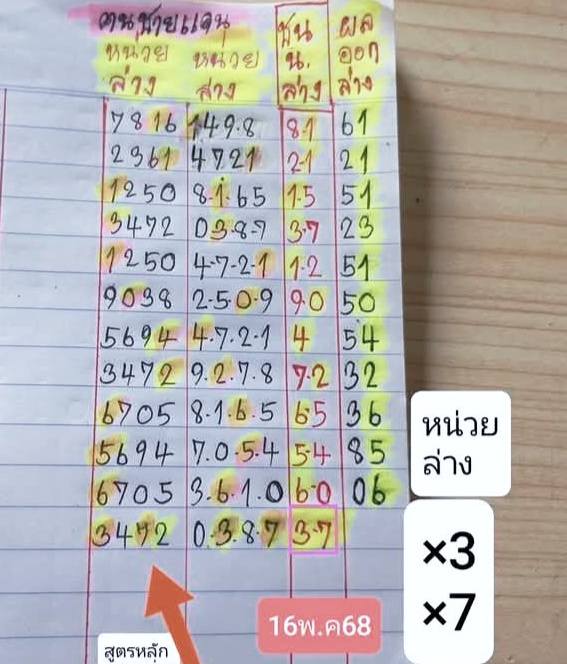 คนชายแดน
หน่วย หน่วย ชน ผล
ล่าง ล่าง น. ออก
ล่าง ล่าง
7816 149.8 8-1 61
2361 4721 2-1 21
1250 8-1-65 1-5 51
3472 03-8-7 3-7 23
1250 4-7-2-1 1-2 51
9038 2-50-9 9-0 50
5694 4.7.2.1 4 54
3472 9.2.7.8 7-2 32
6705 8-1-6-5 65 36
5694 7.0-5.4 5-4 85
6705 3.6.1.0 6-0 06
3472 0-3.8-7 3-7
หน่วย
ล่าง
×3
×7
16พ.ค68
สูตรหลัก